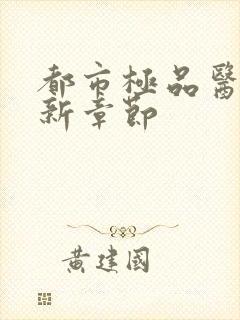 都市極品醫
新章節
黃建國